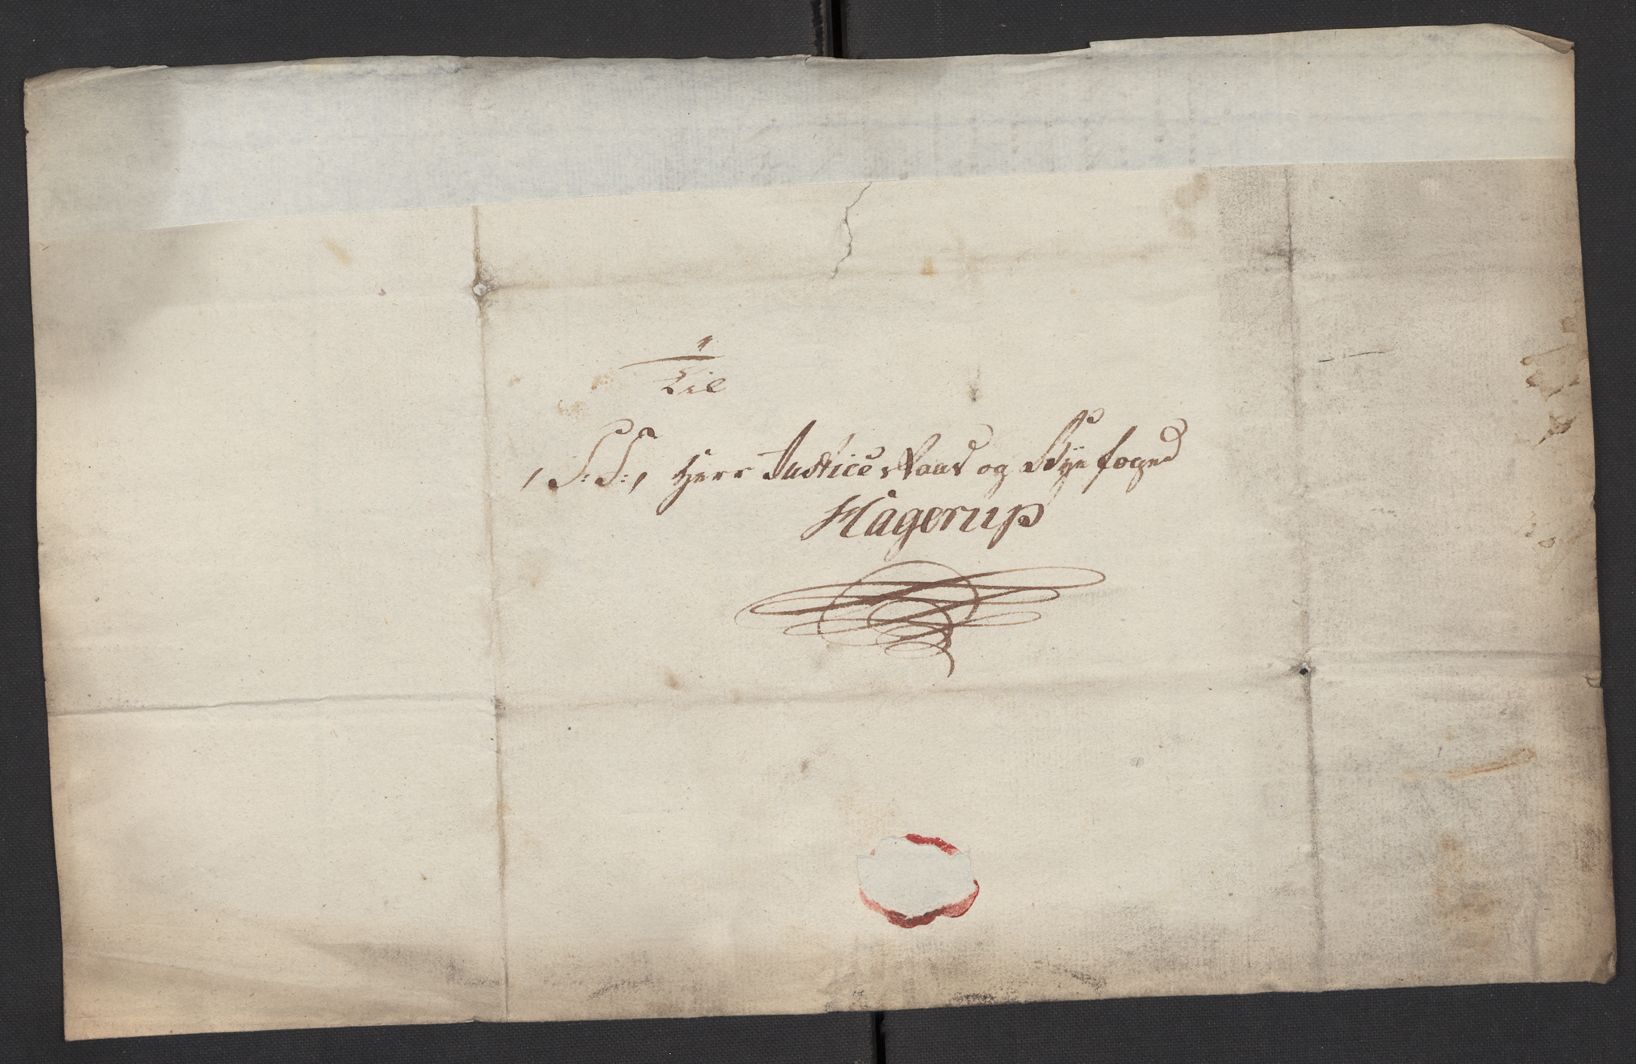 Til
/S: T:/ Herr Justice Raad og Bye foged
Hagerup